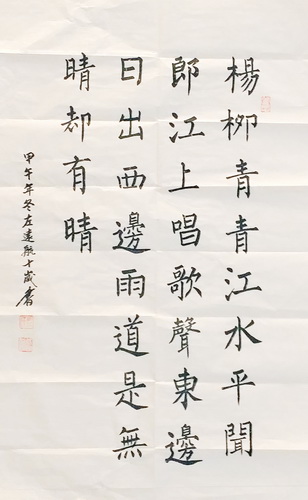 楊柳青青江水平聞
郎江上唱歌聲東邊
日出西邊雨道是無
晴却有晴
甲午年冬左遠航十歲書